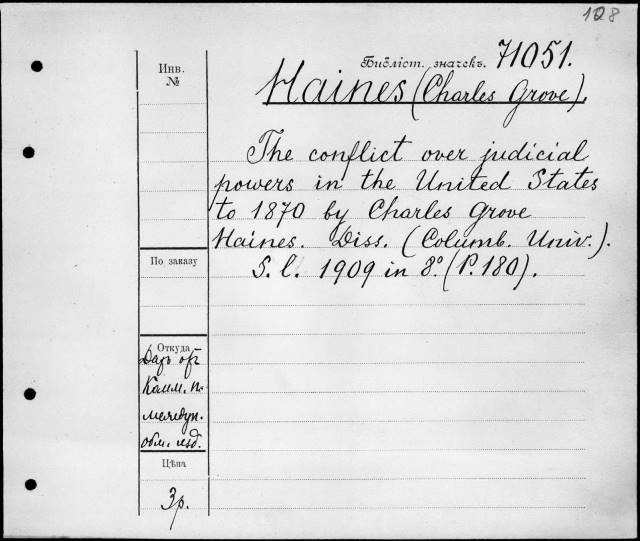 128
Библіот. значекъ. 71051.
Инв.
№
Haines (Charles Grove).
The conflict over judicial
powers in the United States
to 1870 by Charles Grove
Haines. Diss. (Columb. Univ.).
S. l. 1909 in 8º. (P. 180).
По заказу
Откуда
Даръ от
Комм. п.
междун.
обм. изд.
Цѣна
3 р.